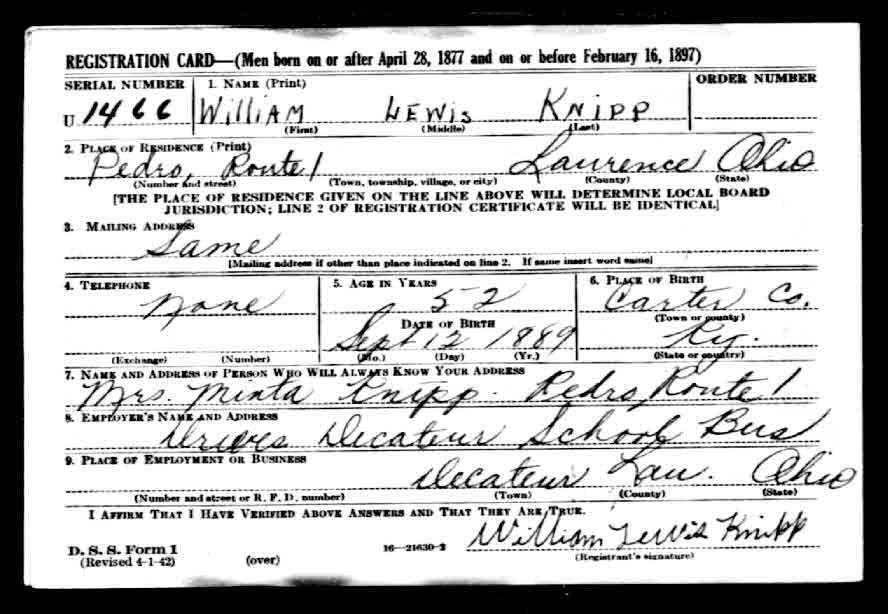 REGISTRATION CARD—(Men born on or after April 28, 1877 and on or before February 16, 1897)
SERIAL NUMBER 1. NAME (Print) ORDER NUMBER
U 1466 WilliAM LEWis KNiPP
(First) (Middle) (Last)
2. PLACE OF RESIDENCE (Print)
Pedro, Route 1 Laurence Ohio
(Number and street) (Town, township, village, or city) (County) (State)
[THE PLACE OF RESIDENCE GIVEN ON THE LINE ABOVE WILL DETERMINE LOCAL BOARD
JURISDICTION; LINE 2 OF REGISTRATION CERTIFICATE WILL BE IDENTICAL]
3. MAILING ADDRESS
Same
[Mailing address if other than place indicated on line 2. If same insert word same]
4. TELEPHONE 5. AGE IN YEARS 6. PLACE OF BIRTH
None 52 Carter Co.
DATE OF BIRTH (Town or county)
Sept 12 1889 Ky.
(Exchange) (Number) (Mo.) (Day) (Yr.) (State or country)
7. NAME AND ADDRESS OF PERSON WHO WILL ALWAYS KNOW YOUR ADDRESS
Mrs. Minta Knipp. Pedro, Route 1
8. EMPLOYER'S NAME AND ADDRESS
Drives Decateur School Bus
9. PLACE OF EMPLOYMENT OR BUSINESS
Decateur Lau. Ohio
(Number and street or R. F. D. number) (Town) (County) (State)
I AFFIRM THAT I HAVE VERIFIED ABOVE ANSWERS AND THAT THEY ARE TRUE.
William Lewis Knipp
D. S. S. Form 1 16—21630-2 (Registrant's signature)
(Revised 4-1-42) (over)